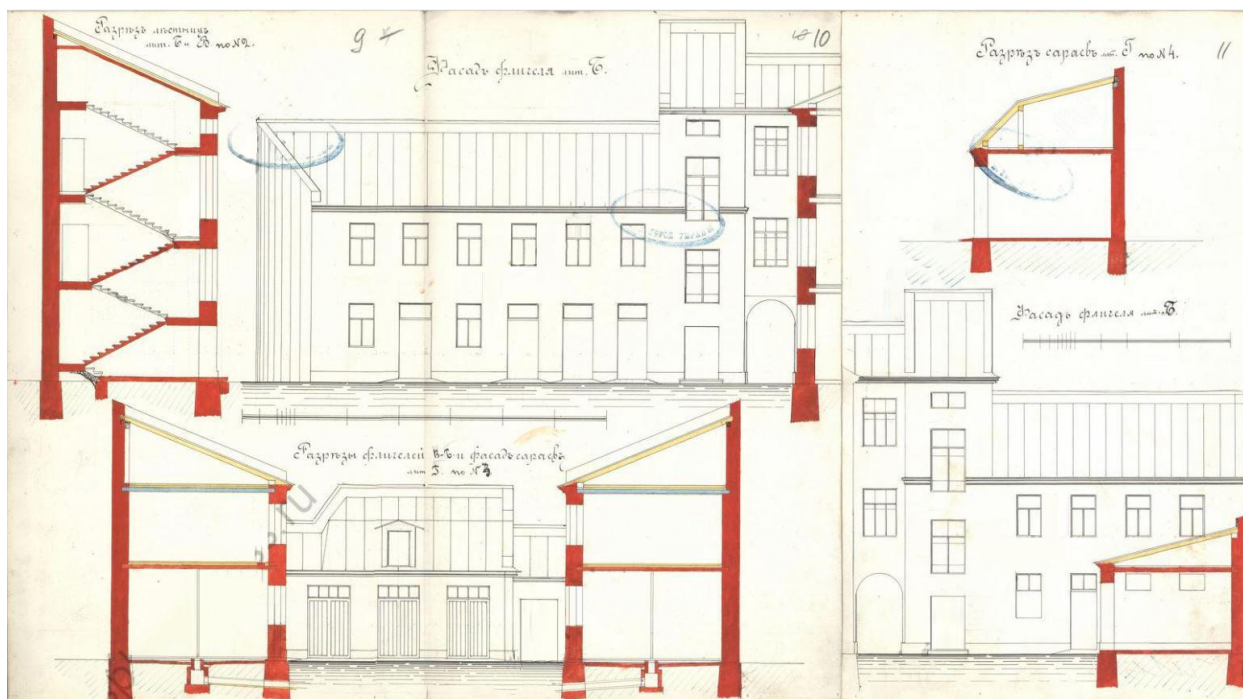 Разрѣзъ лѣстницъ
лит. Б и В по №2.
9
10
Фасадъ флигеля лит. Б.
Разрѣзъ сараевъ лит. Г по №4.
11
Фасадъ флигеля лит. В.
Разрѣзы флигелей В-Б и фасадъ сараевъ
лит. Г. по № 3